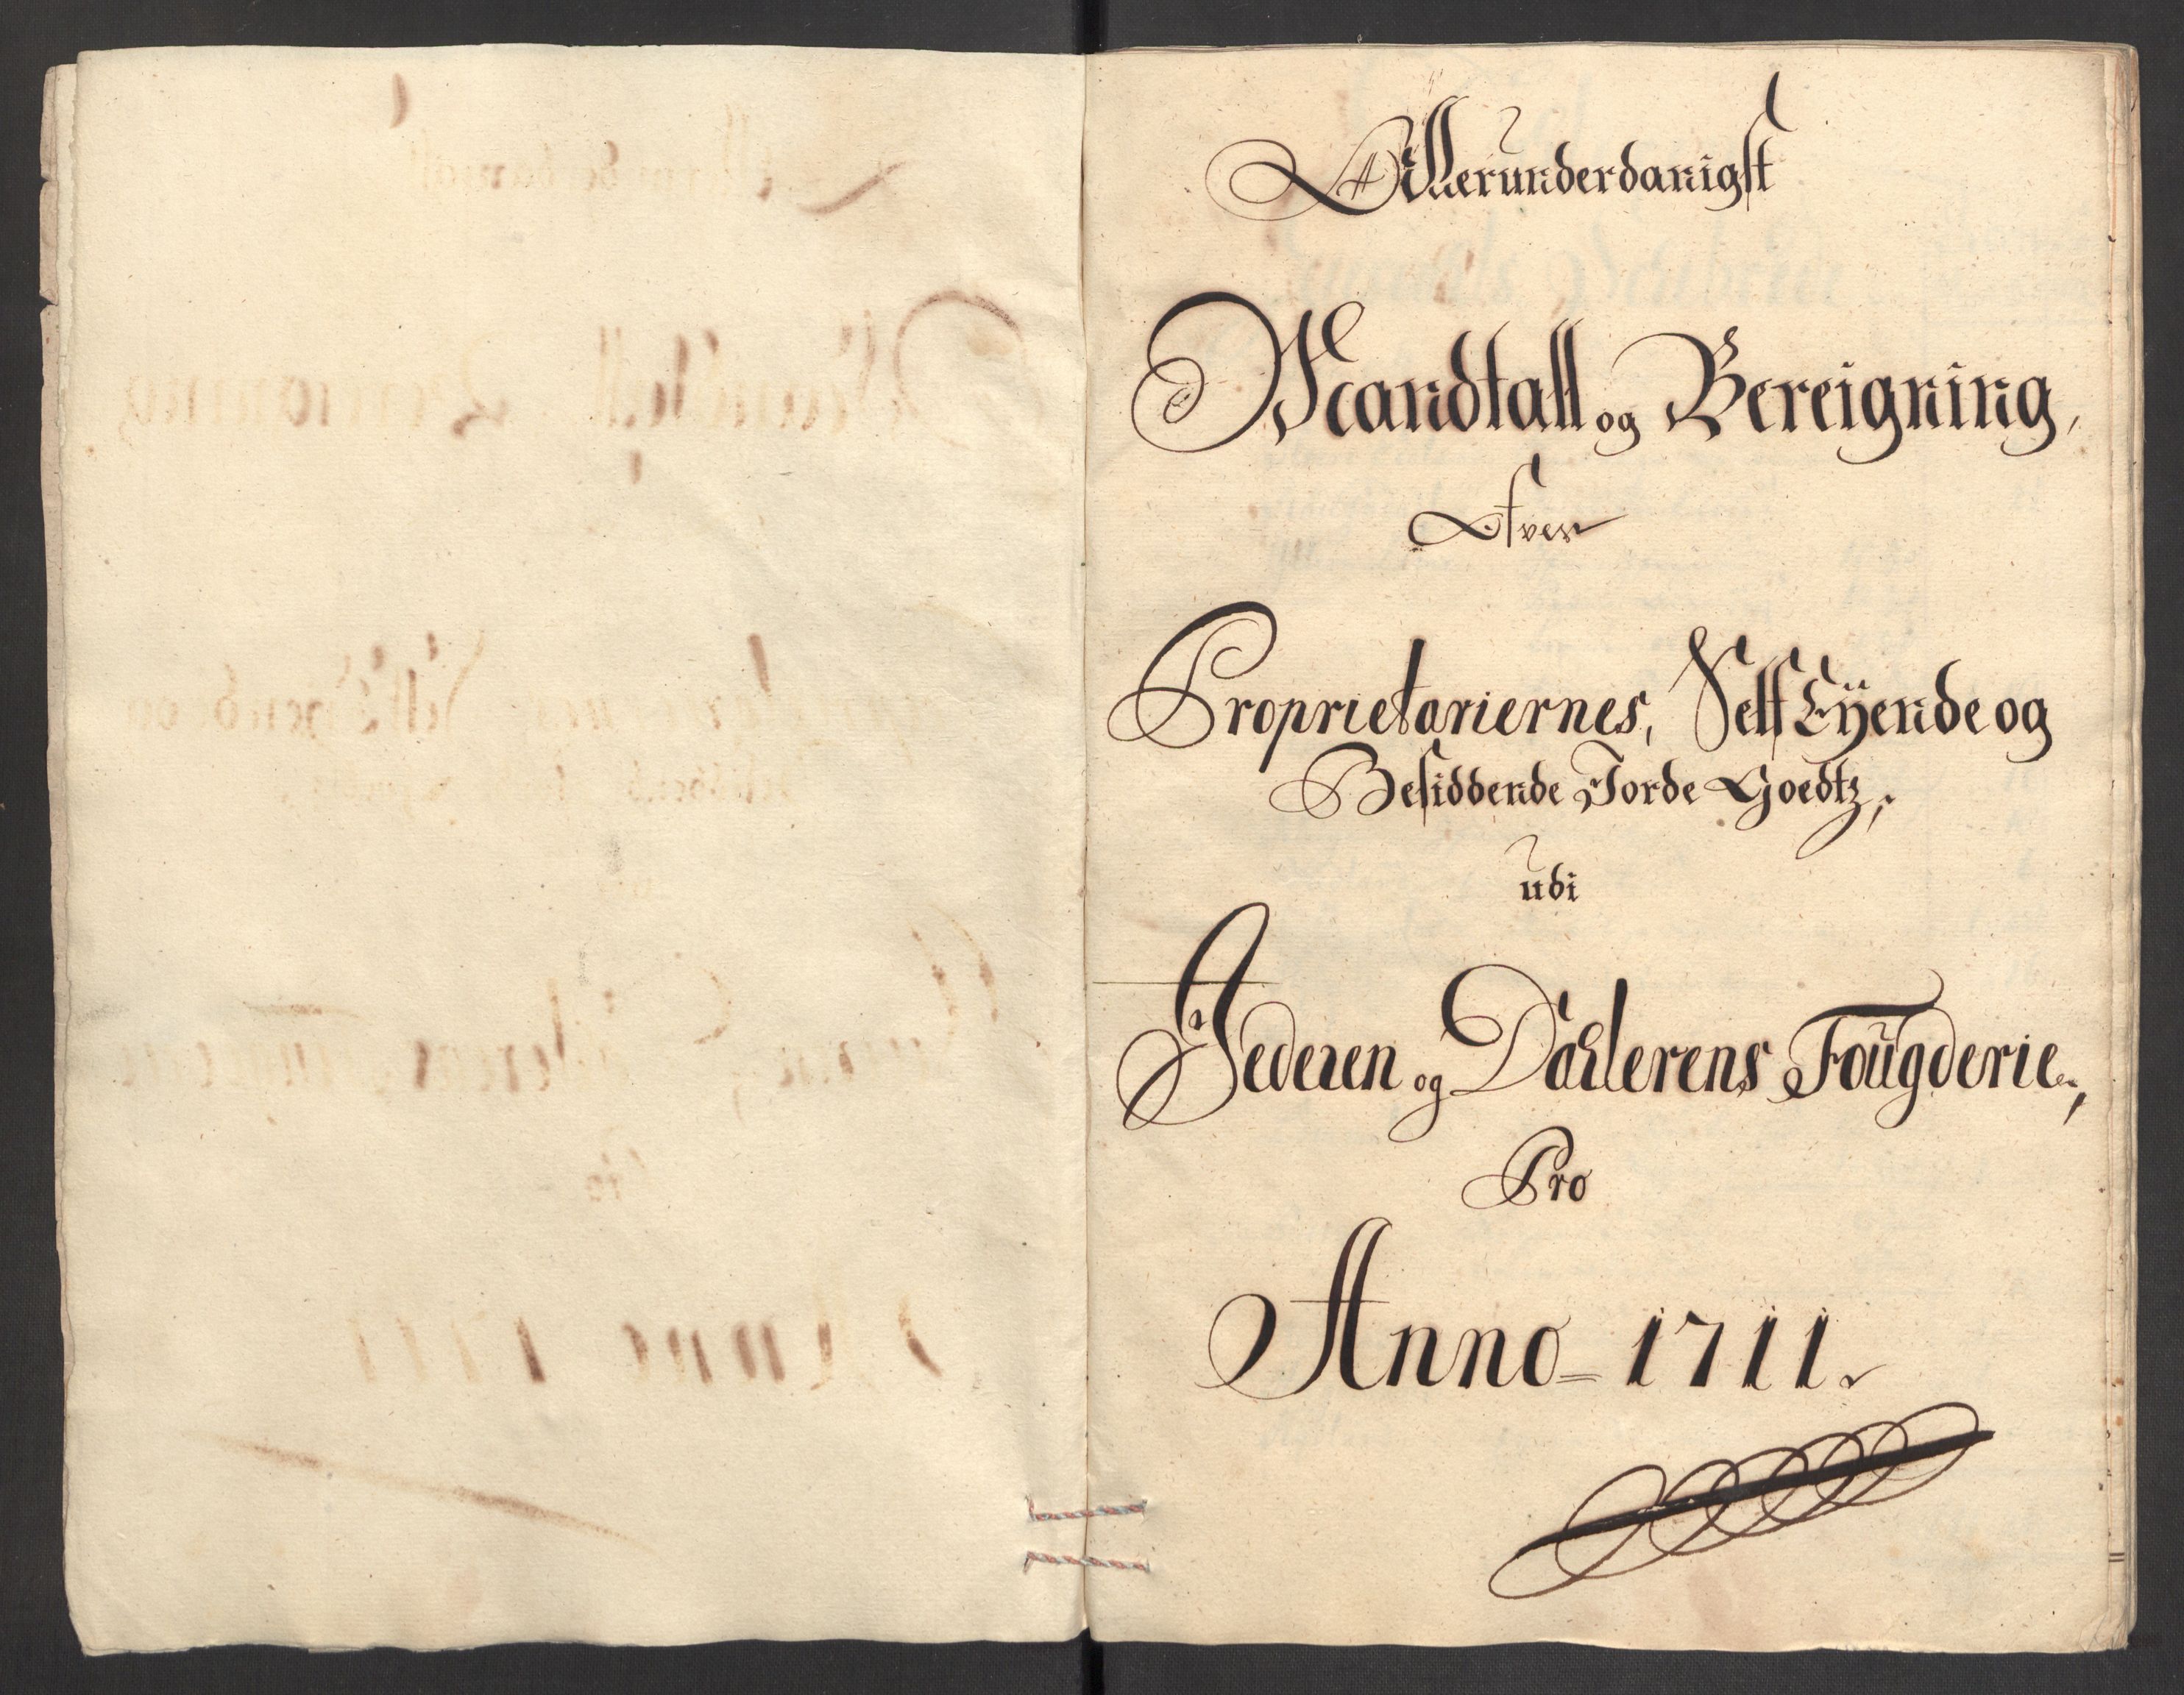 Allerunderdanigst
Mandtall og Bereigning,
Ofver
Proprietariernes, Self Eÿende og
Besiddende Jorde Goedtz,
udi
Jederen og Dahlerens Fougderie,
Pro
Anno 1711.